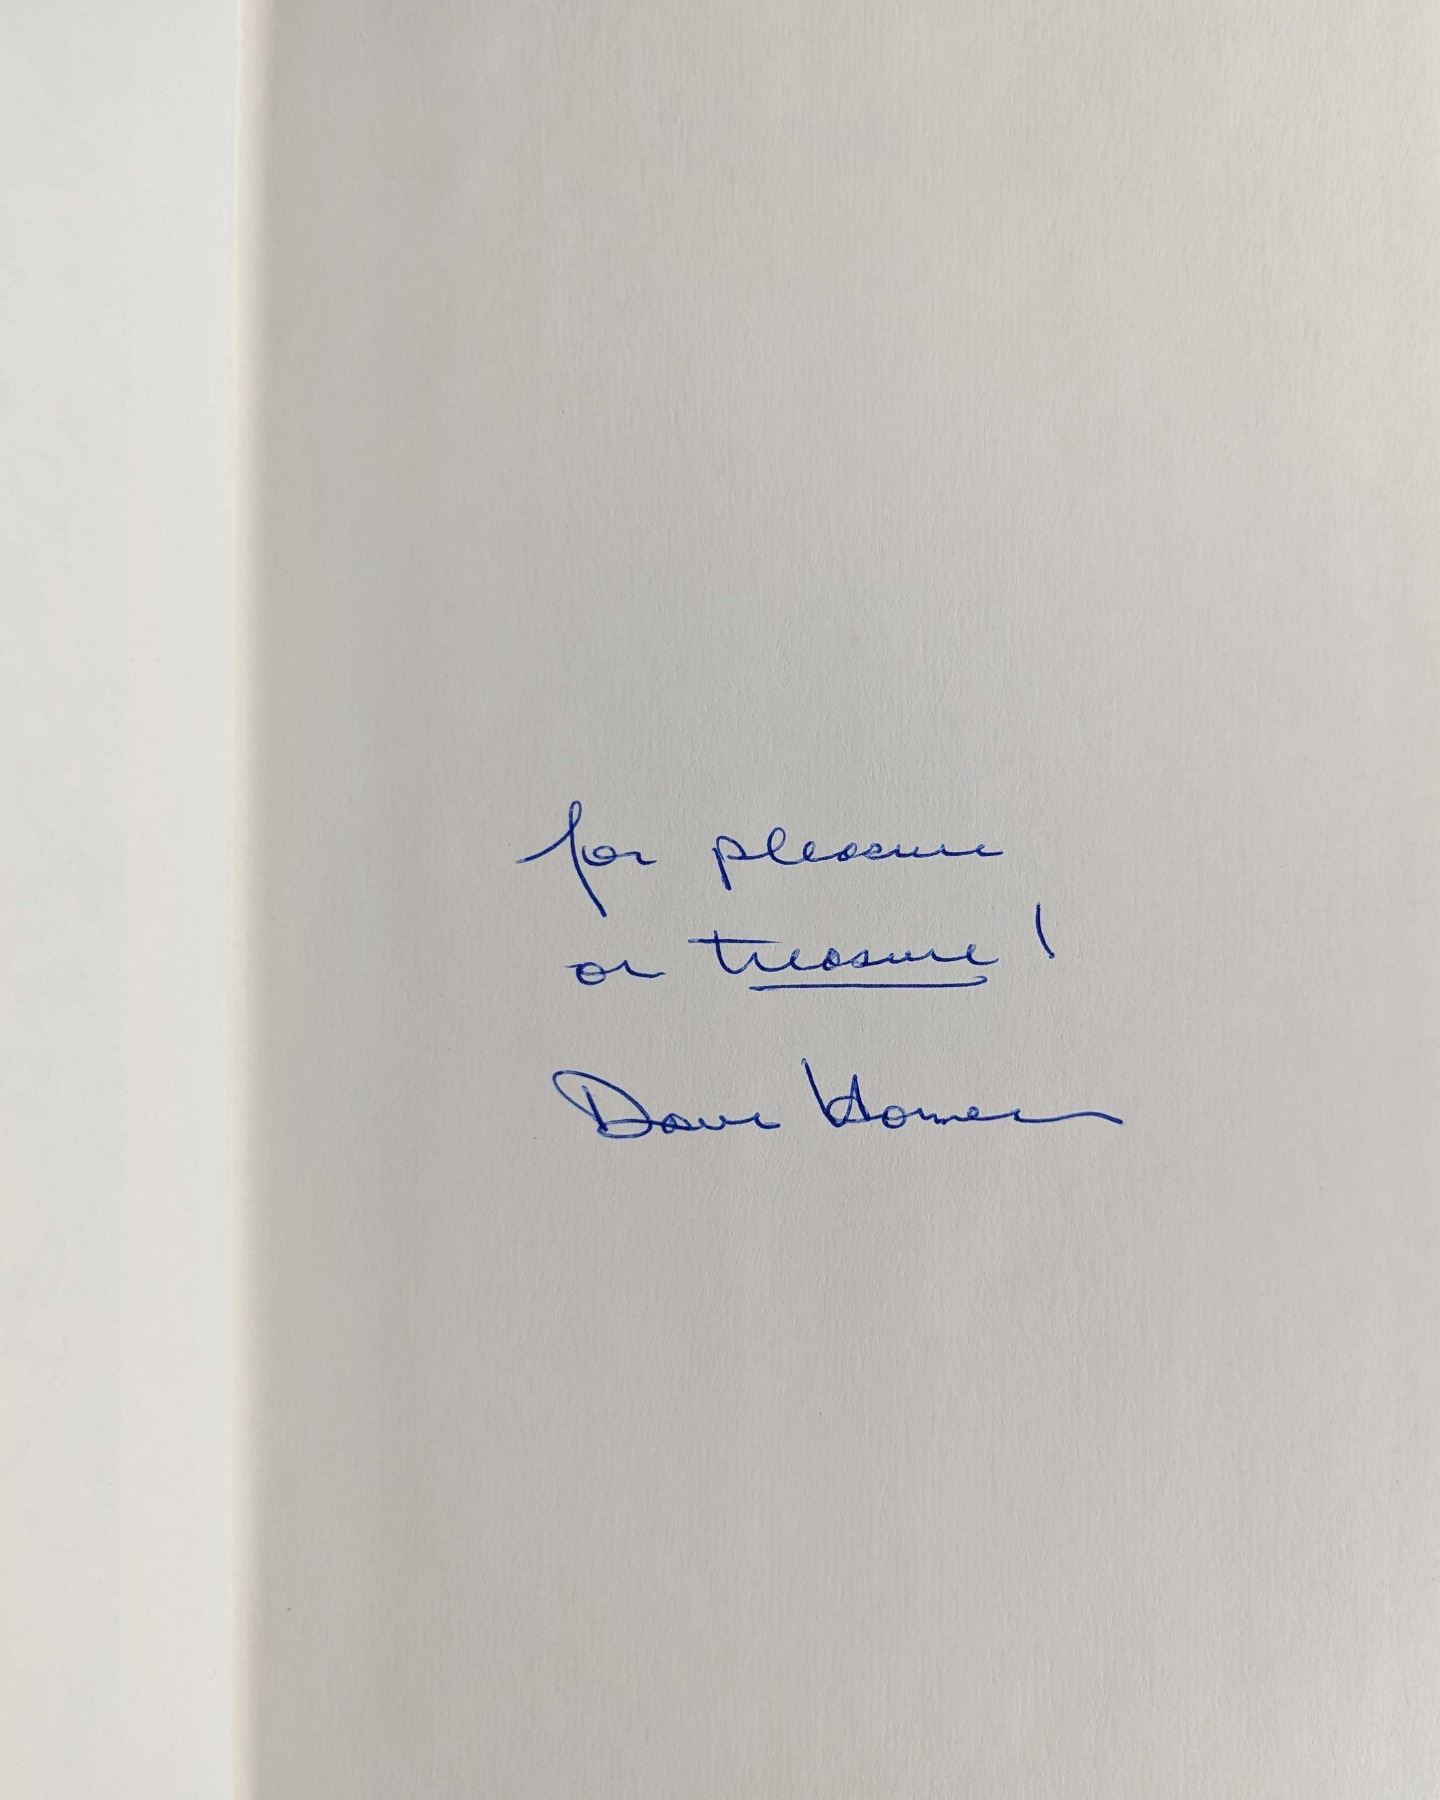 for pleasure
or treasure!
Dave Horner